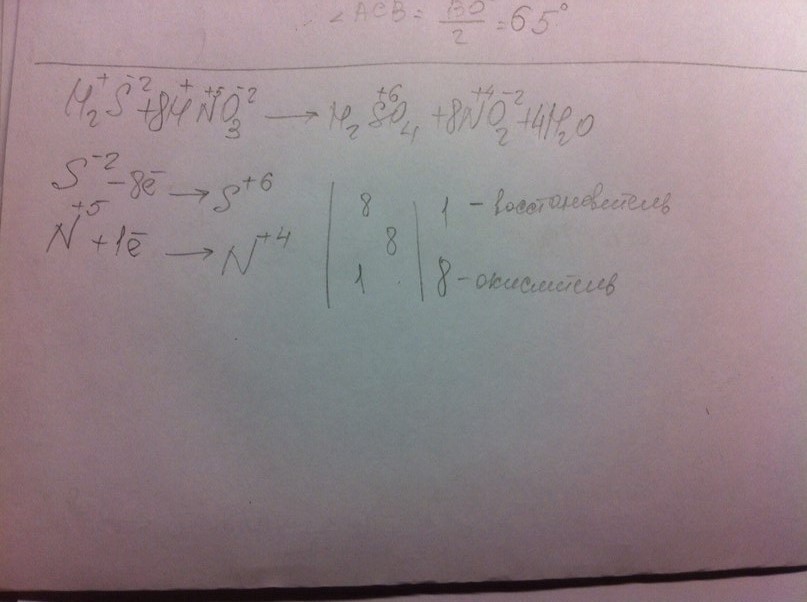 ∠ACB = 130°/2 = 65°
H₂⁺S⁻² + 8H⁺N⁺⁵O₃⁻² → H₂S⁺⁶O₄ + 8N⁺⁴O₂⁻² + 4H₂O
S⁻² - 8ē → S⁺⁶ | 8 | 1 - восстановитель
8
N⁺⁵ + 1ē → N⁺⁴ | 1 | 8 - окислитель